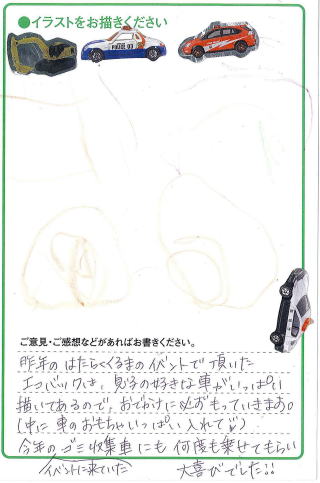 ●イラストをお描きください
POLICE 90
ご意見・ご感想などがあればお書きください。
昨年の はたらくくるまのイベントで 頂いた
エコバックは、息子の好きな車がいっぱい
描いてあるので、おでかけに必ずもっていきます。
(中に 車のおもちゃいっぱい入れて♡)
今年の ゴミ収集車にも 何度も乗せてもらい
イベントに来ていた
大喜びでした!!